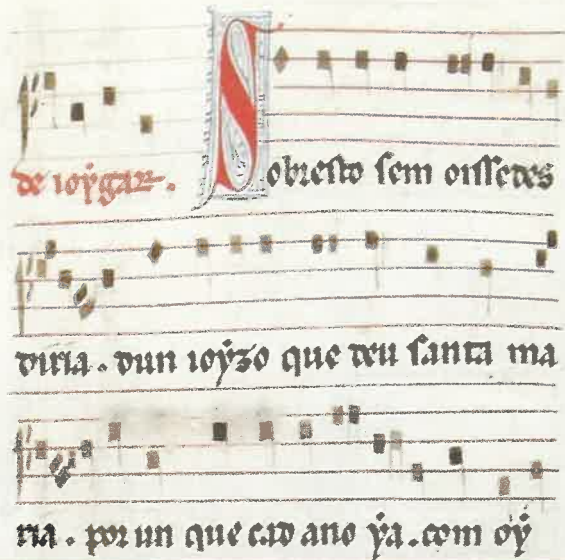 de ioÿgar.
Sobresto sem oissedes
diria. dun ioÿzo que deu santa ma
ria. por un que cad ano ÿa. com oÿ